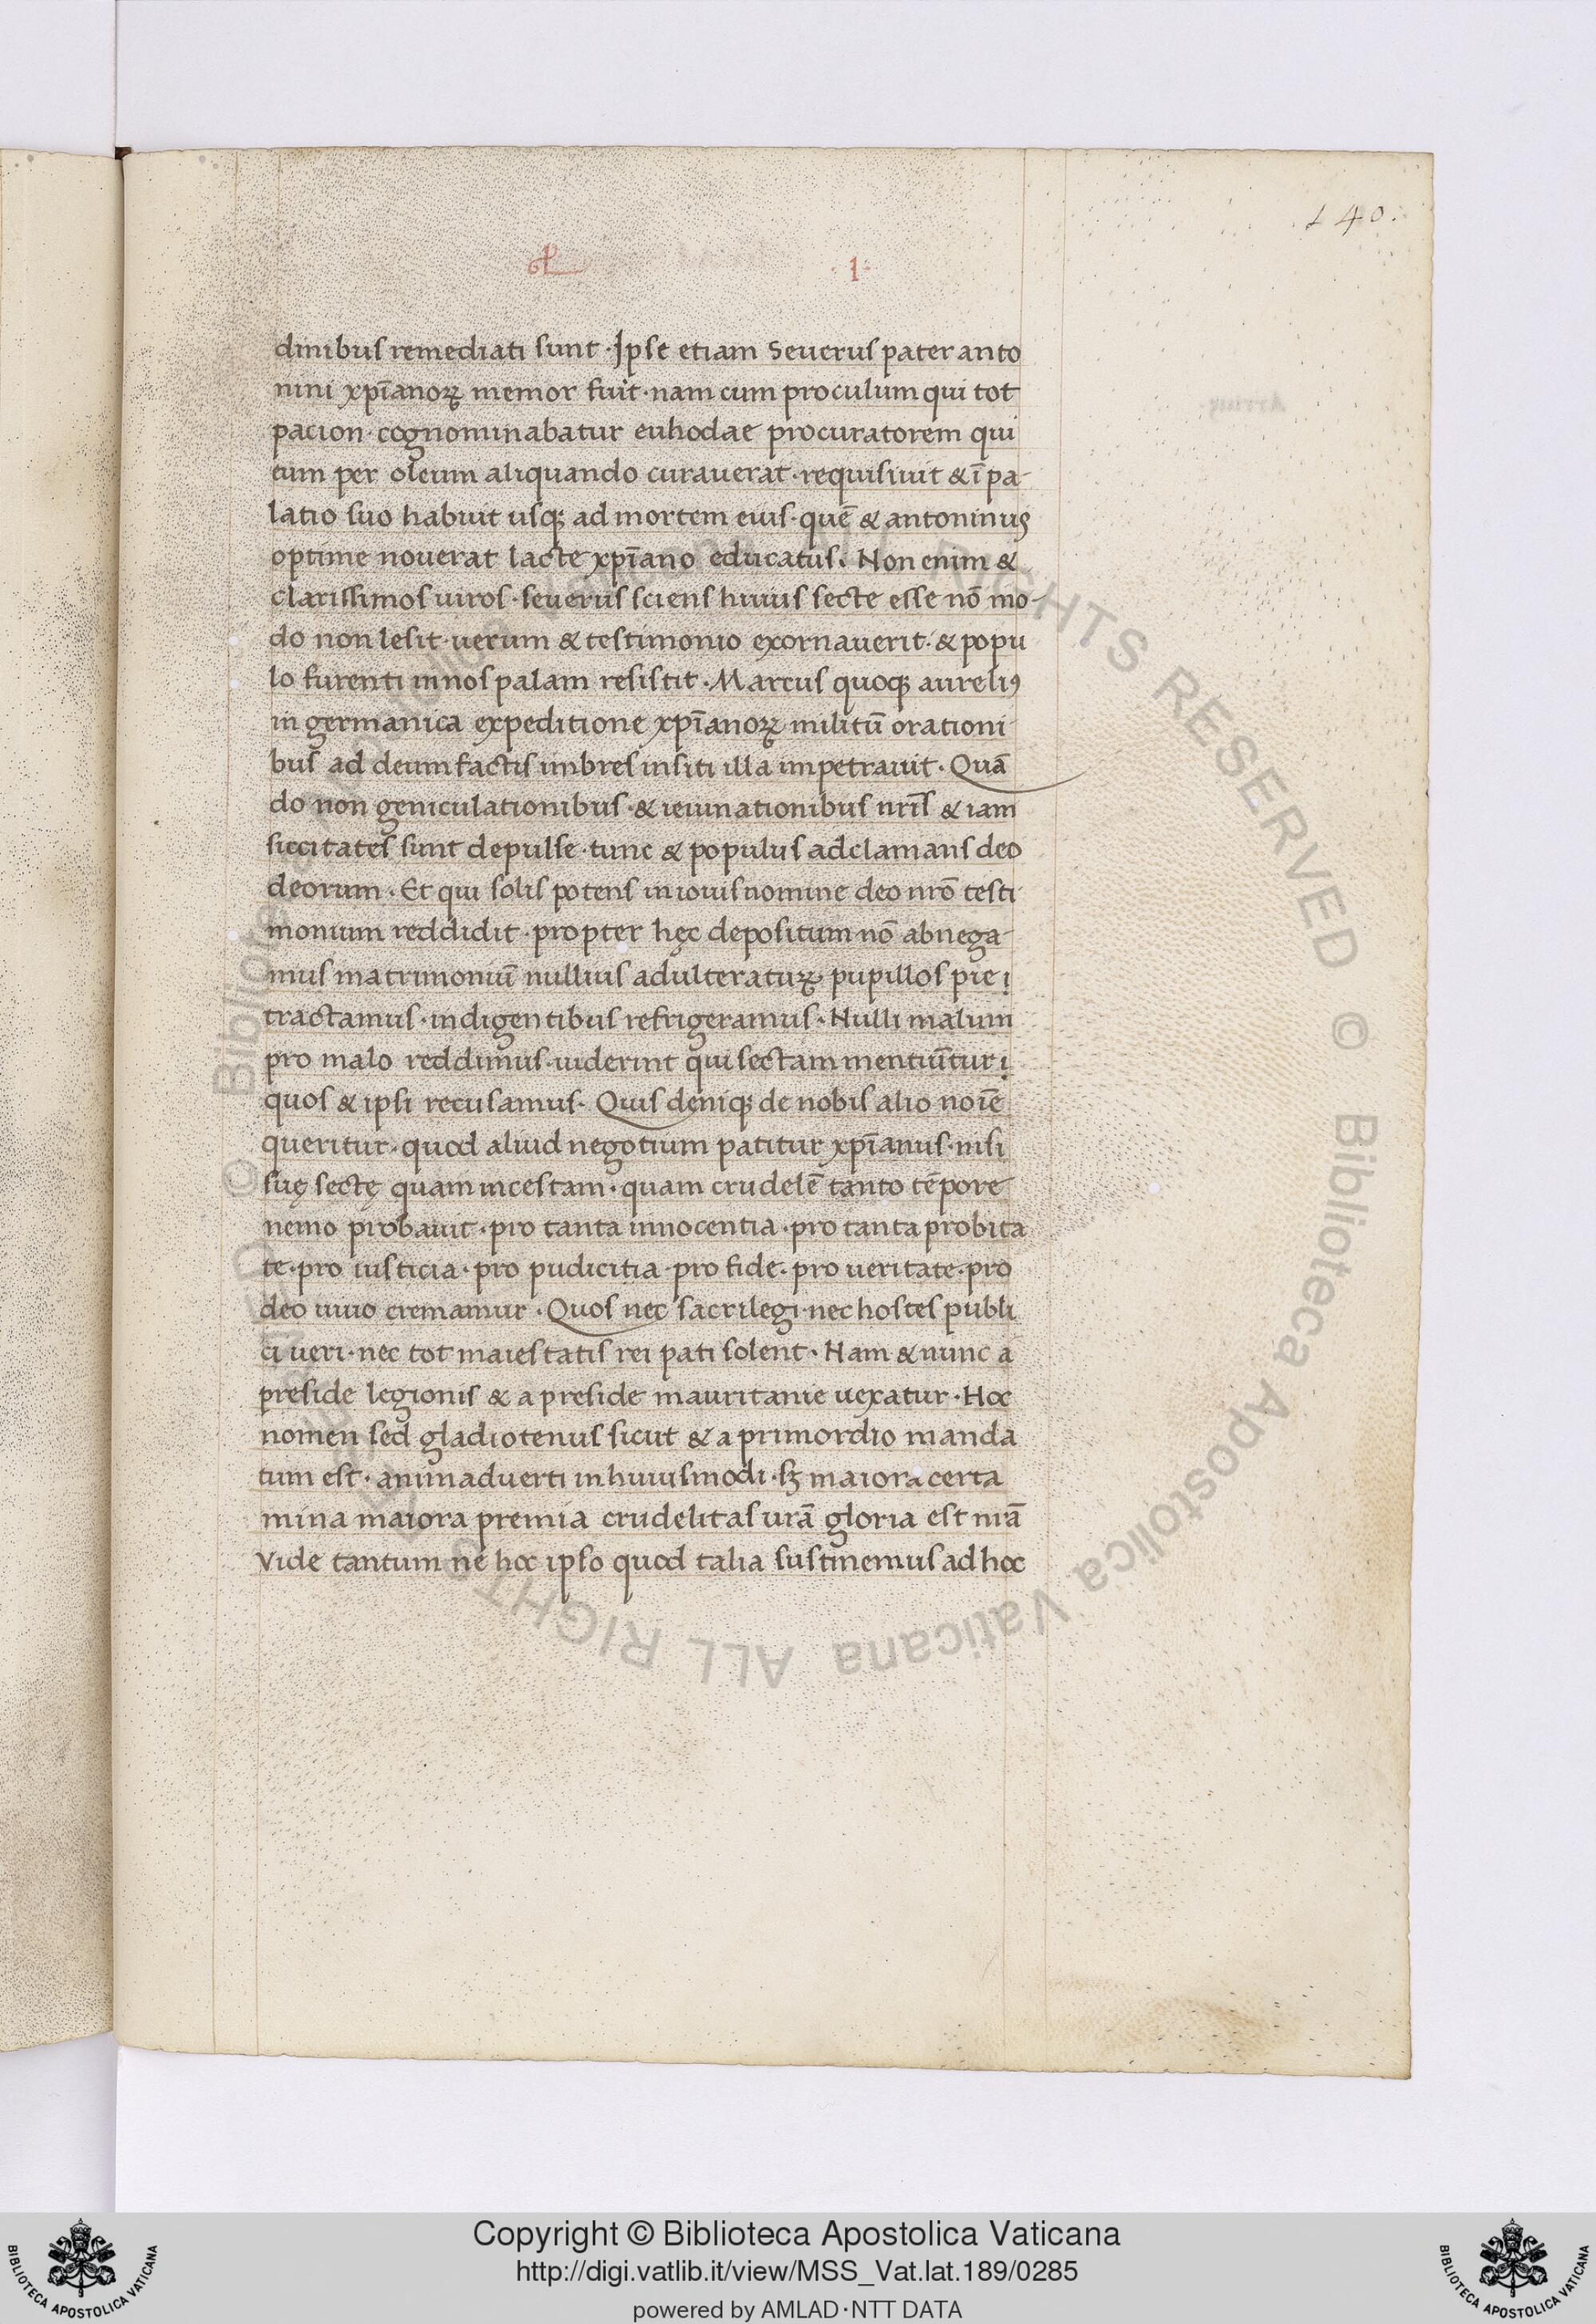 140.
L 1
dinibus remediati sunt · Ipse etiam Seuerus pater anto
nini xp̄ianoꝝ memor fuit · nam cum proculum qui tot
pacion · cognominabatur euhodae procuratorem qui
eum per oleum aliquando curauerat · requisiuit & ī pa-
latio suo habuit usqꝫ ad mortem eius · quē & antoninus
optime nouerat lacte xp̄iano educatus. Non enim &
clarissimos uiros · seuerus sciens huius secte esse nō mo-
do non lesit · uerum & testimonio exornauerit · & popu
lo furenti in nos palam resistit · Marcus quoqꝫ aureliꝰ
in germanica expeditione xp̄ianoꝝ militū orationi
bus ad deum factis imbres in siti illa impetrauit · Quā
do non geniculationibus · & ieiunationibus nr̄is & iam
siccitates sunt depulse · tunc & populus adclamans deo
deorum · Et qui solis potens in iouis nomine deo nr̄o testi
monium reddidit · propter hęc depositum nō abnega-
mus matrimoniū nullius adulteratuꝝ · pupillos pie
tractamus · indigentibus refrigeramus · Nulli malum
pro malo reddimus · uiderint qui sectam mentiūtur
quos & ipsi recusamus · Quis deniqꝫ de nobis alio noīe
queritur · quod aliud negotium patitur xp̄ianus · nisi
suę sectę quam incestam · quam crudelē tanto tēpore
nemo probauit · pro tanta innocentia · pro tanta probita
te · pro iusticia · pro pudicitia · pro fide · pro ueritate · pro
deo uiuo cremamur · Quos nec sacrilegi · nec hostes publi
ci ueri · nec tot maiestatis rei pati solent · Nam & nunc a
preside legionis & a preside mauritanie uexatur · Hoc
nomen sed gladiotenus sicut & a primordio manda
tum est · animaduerti in huiusmodi · sꝫ maiora certa
mina maiora premia crudelitas ur̄a gloria est nr̄a
Vide tantum ne hoc ipso quod talia sustinemus ad hoc
© Biblioteca Apostolica Vaticana ALL RIGHTS RESERVED
Copyright © Biblioteca Apostolica Vaticana
http://digi.vatlib.it/view/MSS_Vat.lat.189/0285
powered by AMLAD·NTT DATA
BIBLIOTECA APOSTOLICA VATICANA
BIBLIOTECA APOSTOLICA VATICANA